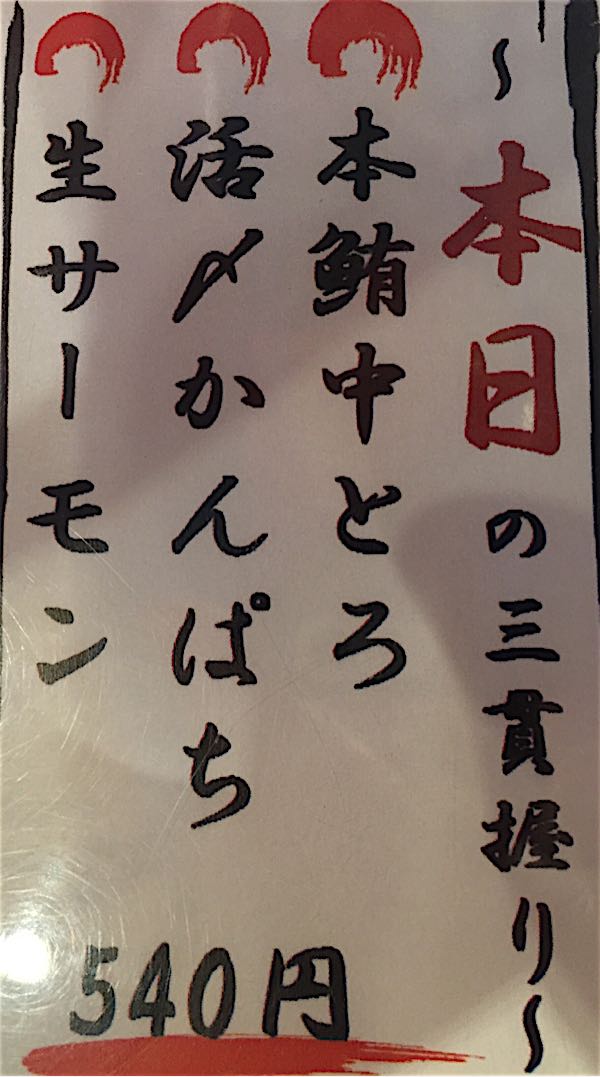 〜本日の三貫握り〜
本鮪中とろ
活〆かんぱち
生サーモン
540円